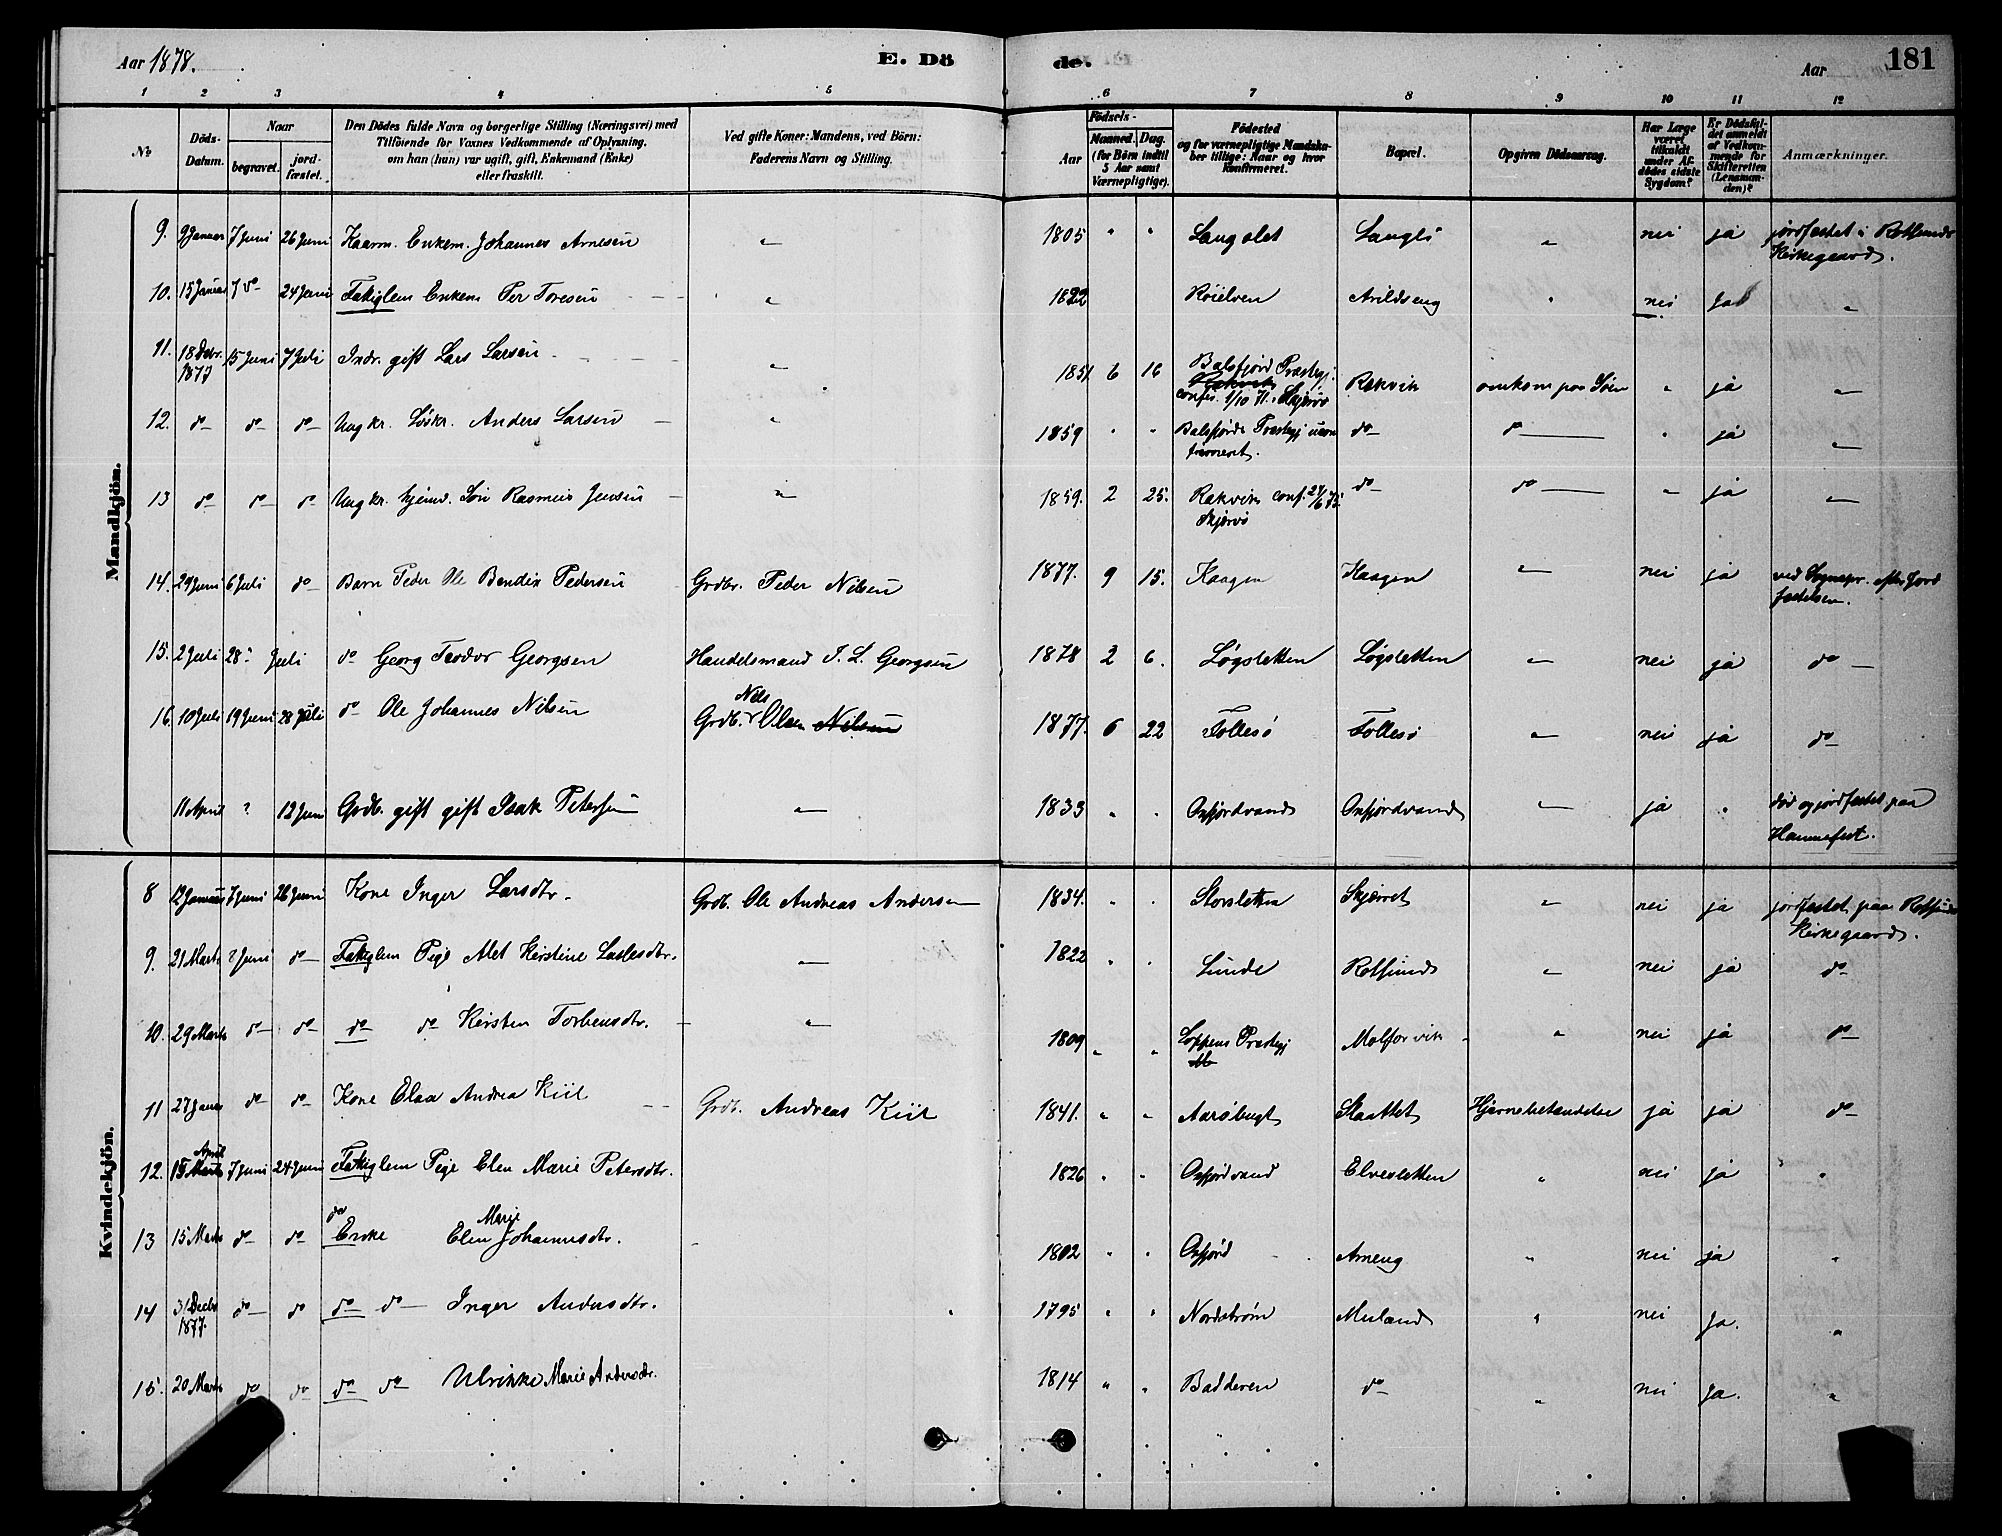 Aar 1878.
E. Dö
de.
Aar
181
1 2 3 4 5 6 7 8 9 10 11 12
№
Döds-
Datum.
Naar
begravet.
jord-
fæstet.
Den Dödes fulde Navn og borgerlige Stilling (Næringsvei) med
Tilföiende for Voxnes Vedkommende af Oplysning,
om han (hun) var ugift, gift, Enkemand (Enke)
eller fraskilt.
Ved gifte Koner: Mandens, ved Börn:
Faderens Navn og Stilling.
Födsels-
Aar
Maaned. Dag.
(for Börn indtil
5 Aar samt
Værnepligtige).
Födested
og for værnepligtige Mandska-
ber tillige: Naar og hvor
konfirmeret.
Bopæl.
Opgiven Dödsaarsag.
Har Læge
været
tilkaldt
under Af-
dödes sidste
Sygdom?
Er Dödsfal-
det anmeldt
af Vedkom-
mende for
Skifteretten
(Lensman-
den)?
Anmærkninger.
Mandkjön.
9. 9 Januar 7 Juni 26 Juni Enkem. Johannes Arnesen " 1805 " " Langslet Langli " nei ja jordfæstet i Rotsunds
Kirkegaard.
10. 15 Januar 7 do 24 Juni Fattiglem Enkem Per Toresen " 1822 Röielven Arildseng " nei Ja "
11. 18 Debr. 15 Juni 7 Juli Indr. gift Lars Larsen " 1851 6 16 Balsfjord Præstegj. Rakvik omkom paa Söen " ja "
1877
confir. 1/10 71. Skjervö
12. do do do Ungkr. Löskr. Anders Larsen " 1859 " " Balsfjords Præstegj ucon do do " ja "
firmeret.
13 do do do Ungkr. hjemv. Sön Rasmus Jensen " 1859. 2 25. Rakvik conf. 24/6 75. do do " ja "
Skjervö
14. 29 Juni 6 Juli do Barn Peder Ole Bendix Pedersen Grdbr. Peder Nilsen 1877. 9 15. Kaagen Kaagen " nei ja ved Sognepr. efter Jord
fæstelsen.
15. 2 Juli 28 Juli do Georg Teodor Georgsen Handelsmand J. L. Georgsen 1878 2 6. Løgsletten Løgsletten " nei ja do
16. 10 Juli 19 Juni 28 Juli do Ole Johannes Nilsen Grdb. Nils Olsen Nilsen 1877. 6 22 Follesö Follesö " nei ja do
11 April ? 12 Juni Grdb. gift gift Isak Petersen " 1833 " " Oxfjordvand Oxfjordvand " ja " död og jordfæstet paa
Hammerfest.
Kvindekjön.
8 12 Januar 7 Juni 26 Juni Kone Inger Larsdtr. Grdb. Ole Andreas Andersen 1834. " " Storsletten Skjerret " nei ja jordfæstet paa Rotsunds
Kirkegaard.
9. 21 Marts 8 Juni do Fattiglem Pige Alet Kirstine Larlesdtr. " 1822 " " Lunde Rotsund " nei ja do
10. 29 Marts do do do do Kirsten Torbensdtr. " 1809 " " Loppens Præstegj Molforvik " nei ja do
11 27 Januar do do Kone Elsa Andrea Kiil Grdb. Andreas Kiil 1841. " " Aaröbugt Slaattet Hjernebetændelse ja ja do
12. 15 Marts April 7 Juni 24 Juni Fattiglem Pige Elen Marie Petersdtr. 1826 " " Oxfjordvand Elvesletten " nei ja "
13 15 Marts do do do Enke Elen Marie Johannesdtr. 1802 " " Oxfjord Arneng " nei ja "
14 31 Decbr do do do do Inger Andersdtr. 1795 " " Nordström Meiland " nei Ja. "
1877.
15. 20 Marts do do do do Ulrikke Marie Andersdtr. 1814 " " Badderen do " nei Ja. "